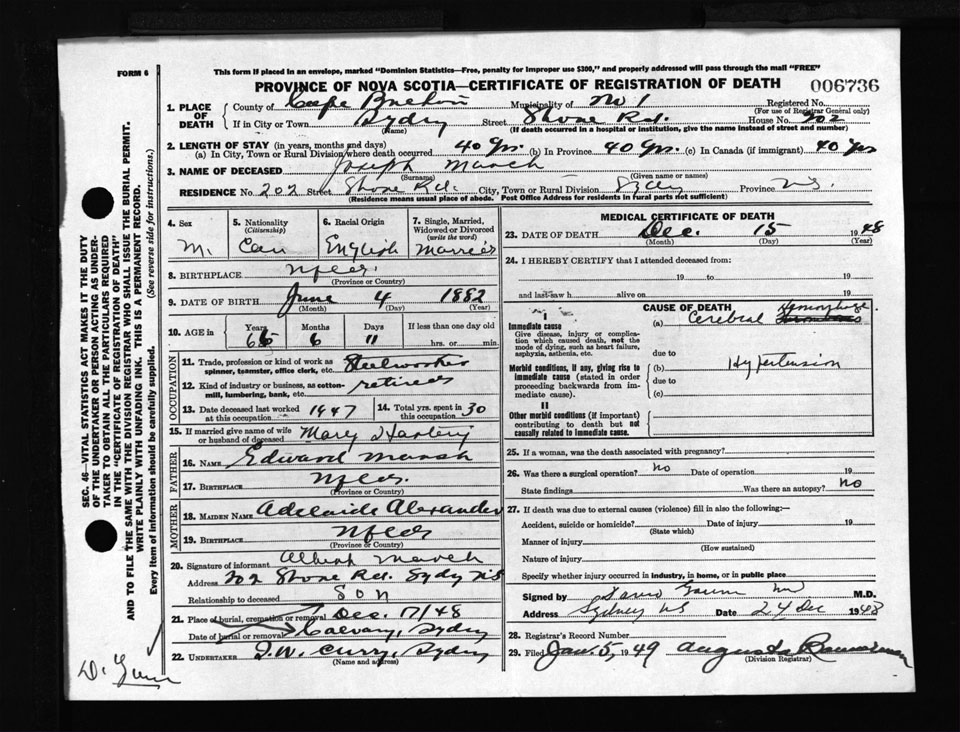 FORM 6
This form if placed in an envelope, marked "Dominion Statistics—Free, penalty for improper use $300," and properly addressed will pass through the mail "FREE"
PROVINCE OF NOVA SCOTIA—CERTIFICATE OF REGISTRATION OF DEATH 006736
1. PLACE OF DEATH County of Cape Breton Municipality of No 1 Registered No.
(For use of Registrar General only)
If in City or Town Sydney Street Shore Rd. House No. 202
(Name) (If death occurred in a hospital or institution, give the name instead of street and number)
2. LENGTH OF STAY (in years, months and days)
(a) In City, Town or Rural Division where death occurred 40 Yrs. (b) In Province 40 Yrs. (c) In Canada (if immigrant) 40 Yrs
3. NAME OF DECEASED Joseph March
(Surname) (Given name or names)
RESIDENCE No. 202 Street Shore Rd. City, Town or Rural Division Sydney Province N.S.
(Residence means usual place of abode. Post Office Address for residents in rural parts not sufficient)
4. Sex M.
5. Nationality (Citizenship) Can
6. Racial Origin English
7. Single, Married, Widowed or Divorced (write the word) Married
8. BIRTHPLACE Nfld.
(Province or Country)
9. DATE OF BIRTH June 4 1882
(Month) (Day) (Year)
10. AGE in Years 66 Months 6 Days 11 If less than one day old
hrs. or min.
OCCUPATION
11. Trade, profession or kind of work as spinner, teamster, office clerk, etc. Steelworker
12. Kind of industry or business, as cotton-mill, lumbering, bank, etc. retired
13. Date deceased last worked at this occupation 1947 14. Total yrs. spent in this occupation 30
15. If married give name of wife or husband of deceased Mary
FATHER
16. NAME Edward Marsh
17. BIRTHPLACE Nfld.
(Province or Country)
MOTHER
18. MAIDEN NAME Adelaide Alexander
19. BIRTHPLACE Nfld
(Province or Country)
20. Signature of informant March
Address 202 Shore Rd. Sydney NS
Relationship to deceased Son
21. Place of burial, cremation or removal Dec. 17/48
Date of burial or removal Calvary, Sydney
22. UNDERTAKER J.W. Curry, Sydney
(Name and address)
MEDICAL CERTIFICATE OF DEATH
23. DATE OF DEATH Dec. 15 1948
(Month) (Day) (Year)
24. I HEREBY CERTIFY that I attended deceased from:
19 to 19
and last saw h alive on 19
CAUSE OF DEATH
I
Immediate cause
Give disease, injury or complication which caused death, not the mode of dying, such as heart failure, asphyxia, asthenia, etc.
(a) Cerebral Hemorrhage
due to
Morbid conditions, if any, giving rise to immediate cause (stated in order proceeding backwards from immediate cause).
(b) Hypertension
due to
(c)
II
Other morbid conditions (if important) contributing to death but not causally related to immediate cause.
25. If a woman, was the death associated with pregnancy?
26. Was there a surgical operation? No Date of operation 19
State findings Was there an autopsy? No
27. If death was due to external causes (violence) fill in also the following:—
Accident, suicide or homicide? Date of injury 19
(State which)
Manner of injury
(How sustained)
Nature of injury
Specify whether injury occurred in industry, in home, or in public place
Signed by M.D.
Address Sydney NS Date 24 Dec 1948
28. Registrar's Record Number
29. Filed Jan. 5, 1949 Augusta
(Division Registrar)
SEC. 46—VITAL STATISTICS ACT MAKES IT THE DUTY
OF THE UNDERTAKER OR PERSON ACTING AS UNDER-
TAKER TO OBTAIN ALL THE PARTICULARS REQUIRED
IN THE "CERTIFICATE OF REGISTRATION OF DEATH"
AND TO FILE THE SAME WITH THE DIVISION REGISTRAR WHO SHALL ISSUE THE BURIAL PERMIT.
WRITE PLAINLY WITH UNFADING INK. THIS IS A PERMANENT RECORD.
Every item of information should be carefully supplied. (See reverse side for instructions.)